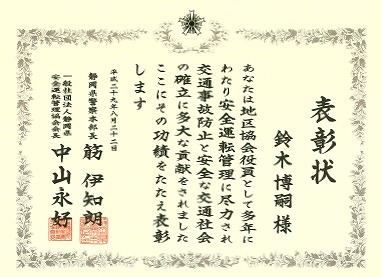 表彰状
鈴木博嗣 様
あなたは地区協会役員として多年に
わたり安全運転管理に尽力され
交通事故防止と安全な交通社会
の確立に多大な貢献をされました
ここにその功績をたたえ表彰
します
平成二十九年八月二十二日
静岡県警察本部長
筋 伊知朗
一般社団法人静岡県
安全運転管理協会会長
中山永好